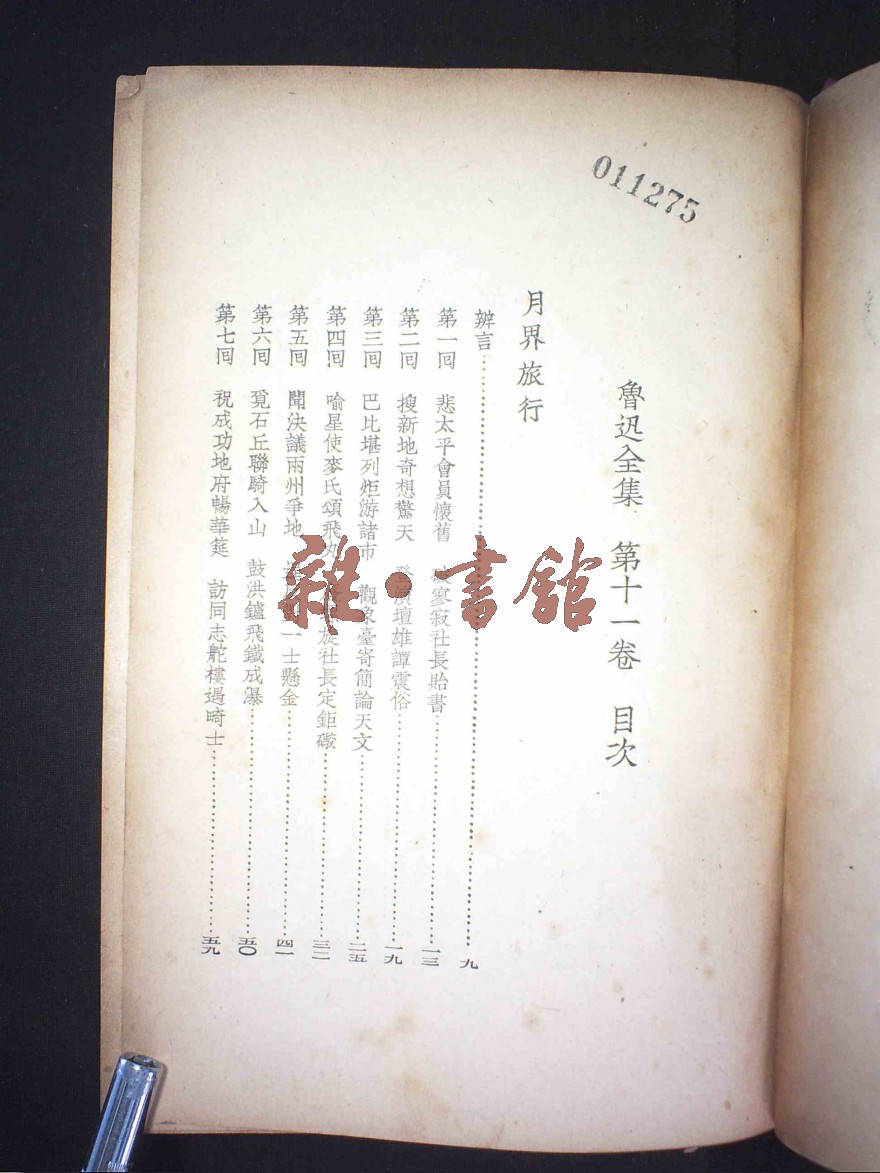 011275
魯迅全集 第十一卷 目次
月界旅行
辨言 九
第一回 悲太平會員懷舊 破寥寂社長貽書 一三
第二回 搜新地奇想驚天 登演壇雄譚震俗 一九
第三回 巴比堪列炬游諸市 觀象臺寄簡論天文 二五
第四回 喻星使麥氏頌飛丸 旋社長定鉅礮 三二
第五回 聞決議兩州爭地 一士懸金 四一
第六回 覓石丘聯騎入山 鼓洪鑪飛鐵成瀑 五〇
第七回 祝成功地府暢華筵 訪同志舵樓遇畸士 五九
雜·書館